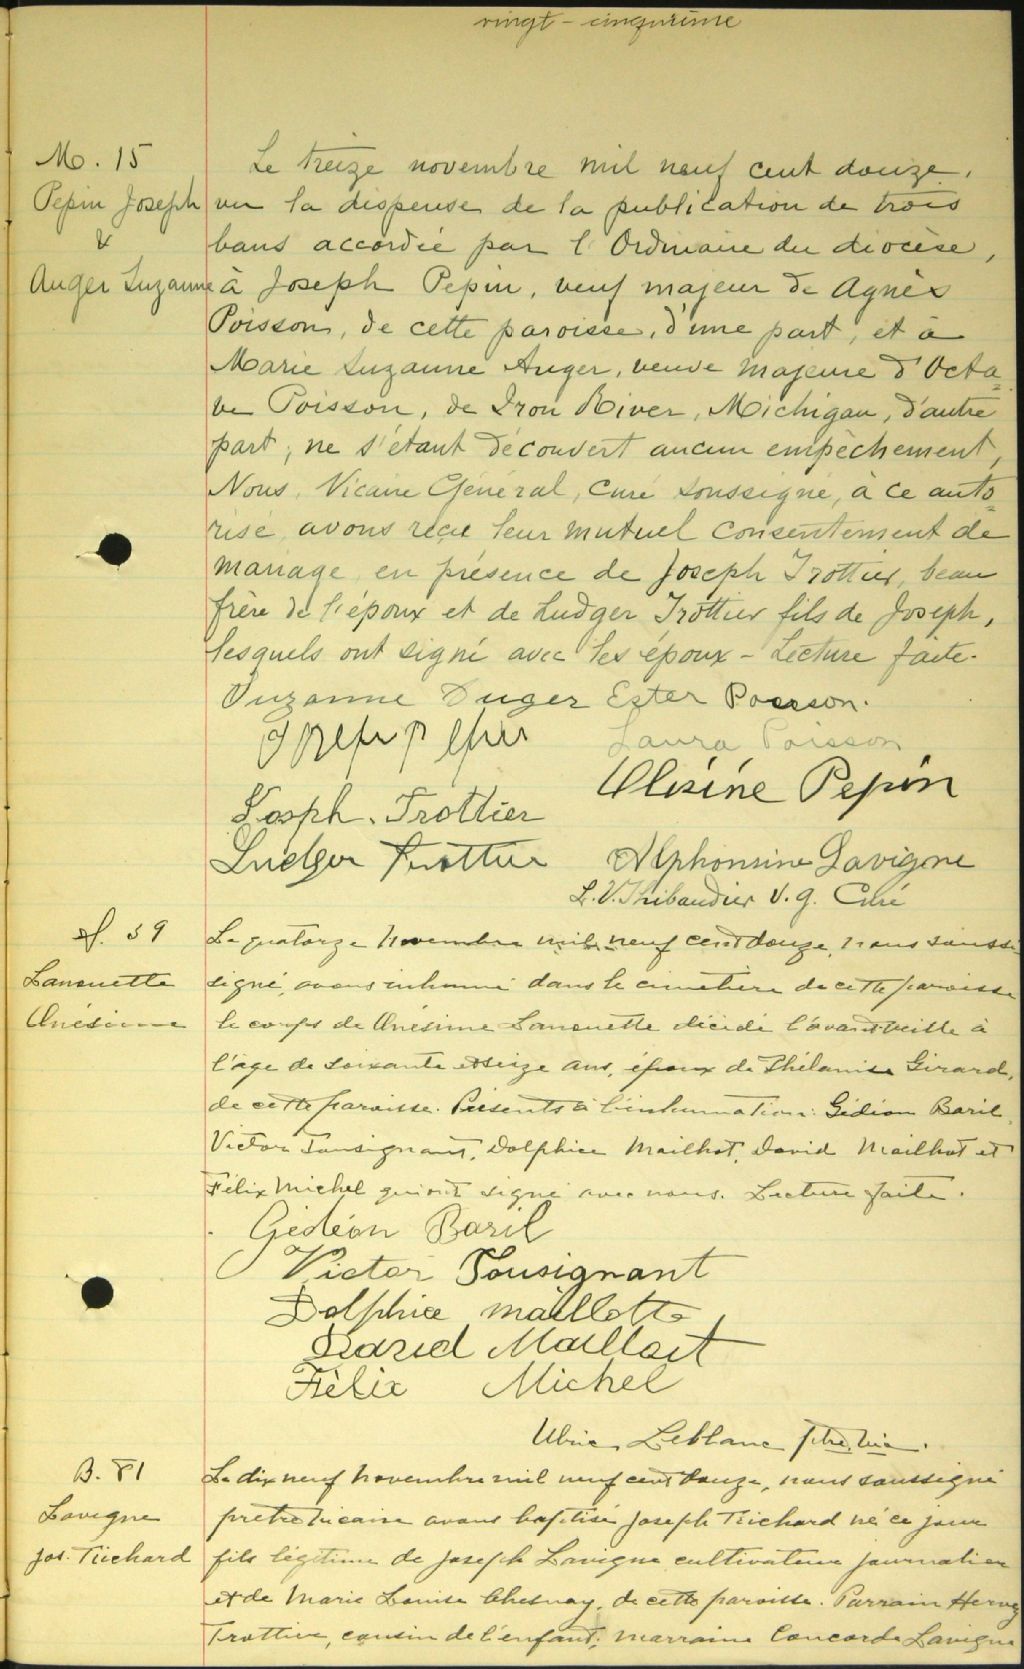 vingt-cinquième
M. 15
Pepin Joseph
&
Auger Suzanne
Le treize novembre mil neuf cent douze,
vu la dispense de la publication de trois
bans accordée par l'Ordinaire du diocèse,
à Joseph Pepin, veuf majeur de Agnès
Poisson, de cette paroisse, d'une part, et à
Marie Suzanne Auger, veuve majeure d'Octa=
ve Poisson, de Iron River, Michigan, d'autre
part; ne s'étant découvert aucun empêchement,
Nous, Vicaire Général, Curé soussigné, à ce auto=
risé, avons reçu leur mutuel consentement de
mariage en présence de Joseph Trottier, beau
frère de l'époux et de Ludger Trottier fils de Joseph,
lesquels ont signé avec les époux - Lecture faite.
Suzanne Auger Ester Poisson.
Josep Pepin Laura Poisson
Ulisine Pepin
Josph. Trottier
Ludger Trottier Alphonsine Lavigne
L. V. Thibaudier V. G. Curé
S. 59
Lanouette
Onésime
Le quatorze novembre mil neuf cent douze, nous sous
signé, avons inhumé dans le cimetière de cette paroisse
le corps de Onésime Lanouette décédé l'avant-veille à
l'âge de soixante et seize ans, époux de Phélanise Girard,
de cette paroisse. Présents à l'inhumation: Gédéon Baril,
Victor Tousignant, Dolphice Mailhot, David Mailhot et
Félix Michel qui ont signé avec nous. Lecture faite.
Gédéon Baril
Victor Tousignant
Dolphice maillotte
David Maillait
Félix Michel
Ulric Leblanc ptre. vic.
B. 81
Lavigne
Jos. Richard
Le dix neuf novembre mil neuf cent douze, nous soussigné
prêtre vicaire avons baptisé Joseph Richard né ce jour
fils légitime de Joseph Lavigne cultivateur journalier
et de Marie Louise Chesnay, de cette paroisse. Parrain Hervey
Trottier, cousin de l'enfant; marraine Concorde Lavigne